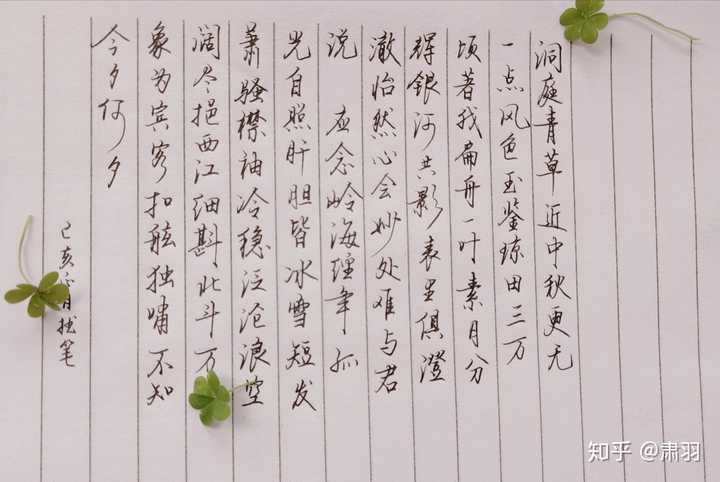 洞庭青草近中秋更无
一点风色玉鉴琼田三万
顷著我扁舟一叶素月分
辉银河共影表里俱澄
澈怡然心会妙处难与君
说 应念岭海经年孤
光自照肝胆皆冰雪短发
萧骚襟袖冷稳泛沧浪空
阔尽挹西江细斟北斗万
象为宾客扣舷独啸不知
今夕何夕
己亥月拙笔
知乎 @肃羽